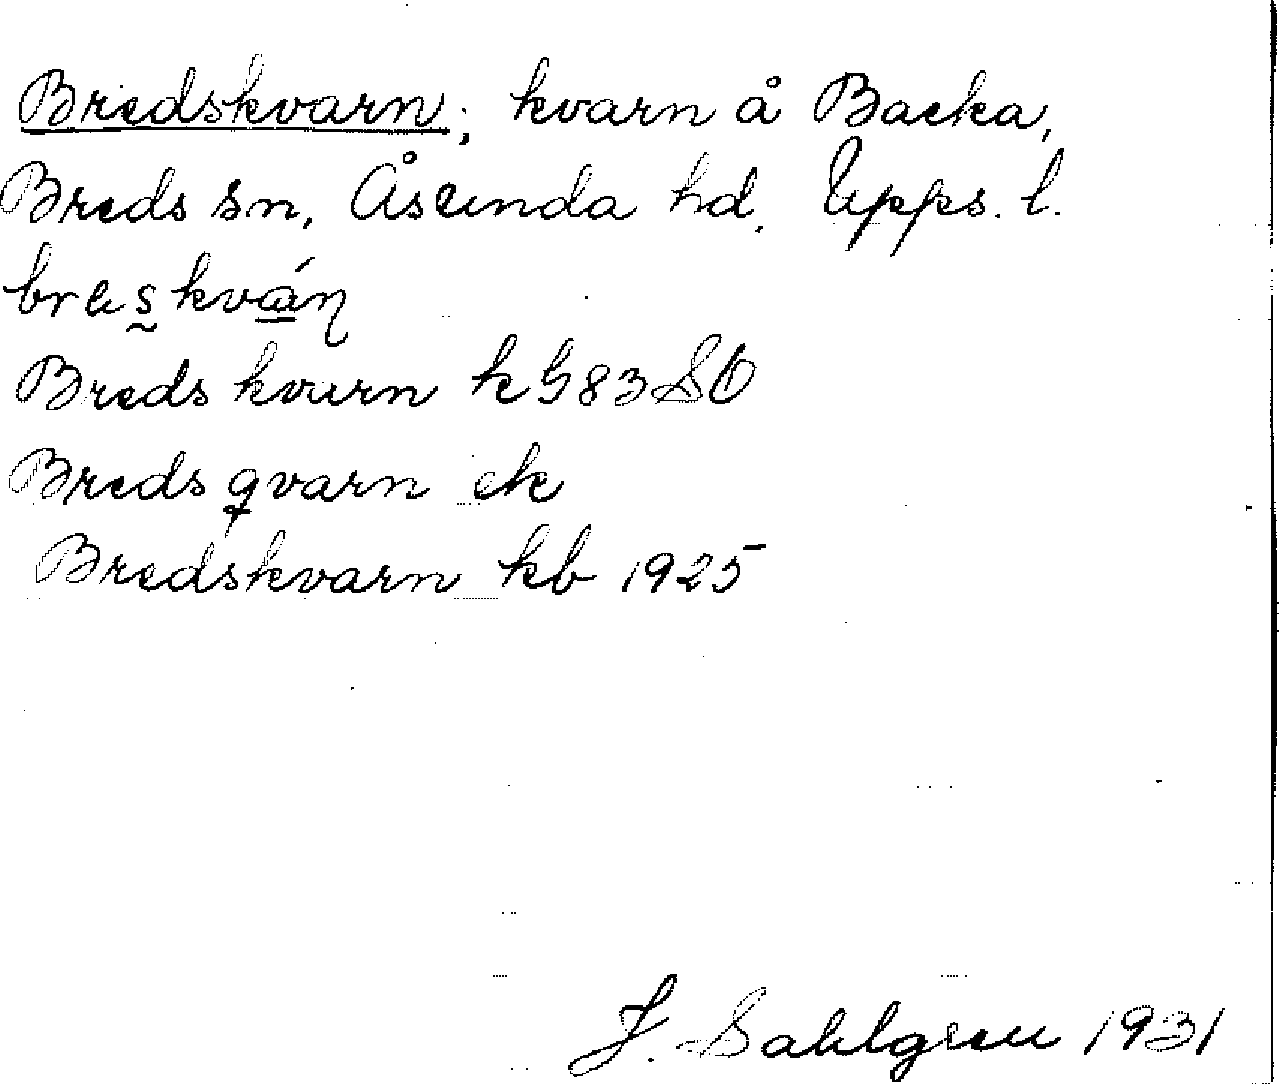 Bredskvarn; kvarn å Backa,
Breds sn, Åsunda hd, Upps. l.
Bredskvarn k G83SO
Bredsqvarn ek
Bredskvarn kb 1925
J. Sahlgren 1931